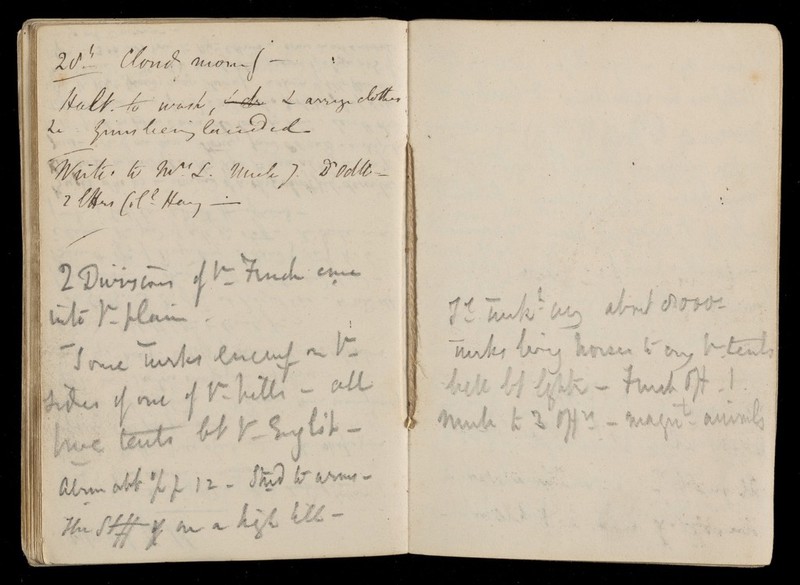 20th Cloudy morng -
Halt to wash, & arrange clothes
&c Guns being landed
Write to Mrs L.
2 letters Col.
2 Divisions of ye French came
into ye plain.
Some Turks encamp on ye
sides of one of ye hills - all
have tents but ye English -
Alarm abt 1/2 p 12 - Stood to arms -
The Staff on a high hill -
Ye Turkh army about 8000 -
Turks being horses to carry ye tents
French Off. 1
mule to 3 Offrs - magnt. animals